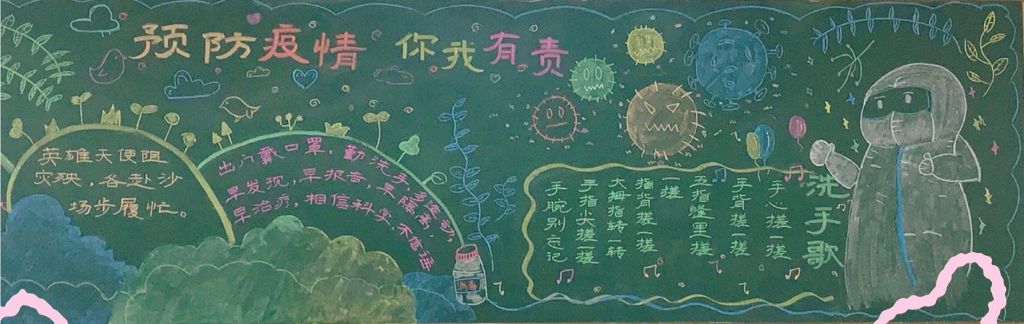 预防疫情 你我有责
英雄天使阻
灾殃，各赴沙
场步履忙。
出门戴口罩，勤洗手多运动，
早发现，早报告，早隔离，
早治疗，相信科学，不传谣
洗手歌
手心搓一搓
手背搓一搓
五指缝里搓
一搓
指背搓一搓
大拇指转一转
手指尖搓一搓
手腕别忘记